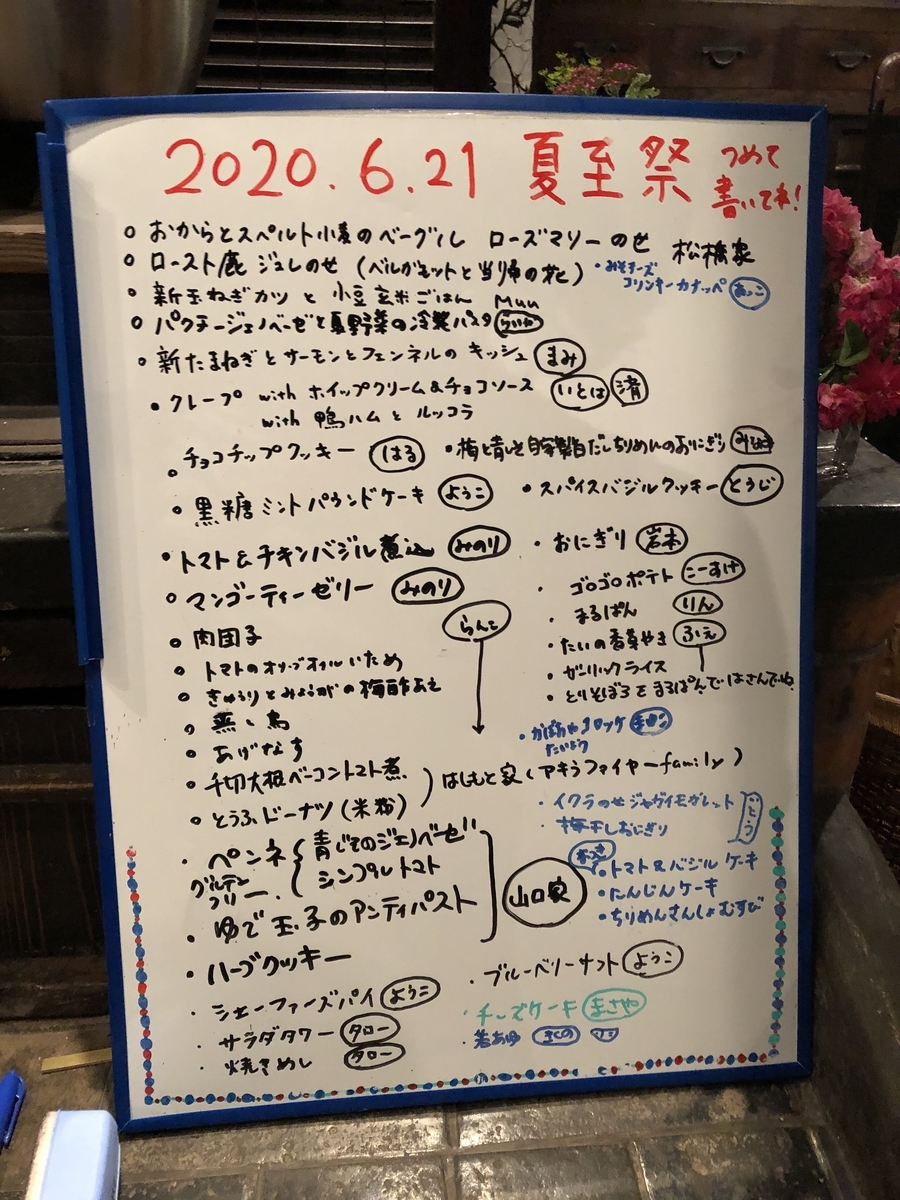 2020.6.21 夏至祭 つめて
書いてね!
おからとスペルト小麦のベーグル ローズマリーのせ 松橋家
ロースト鹿 ジュレのせ (ベルガモットと当帰の花)
・みそチーズ
コリンキーカナッペ あっこ
新玉ねぎカツ と 小豆玄米ごはん Muu
パクチージェノベーゼと夏野菜の冷製パスタ
新たまねぎとサーモンとフェンネルの キッシュ まみ
クレープ with ホイップクリーム&チョコソース いとは 清
with 鴨ハムと ルッコラ
チョコチップクッキー はる
・梅と青しそ自家製白だしちりめんのおにぎり
黒糖ミントパウンドケーキ ようこ
・スパイスバジルクッキー とうじ
トマト&チキンバジル煮込 みのり
・おにぎり 岩本
マンゴーティーゼリー みのり
・ゴロゴロポテト こーすけ
・まるぱん りん
肉団子 らんこ
・たいの香草やき ふえ
トマトのオリーブオイルいため
・ガーリックライス
きゅうりとみょうがの梅酢あえ
・とりそぼろをまるぱんではさんでね。
蒸し鳥
あげなす
・かぼちゃコロッケ
たいよう
千切大根ベーコントマト煮
とうふドーナツ (米粉)
はしもと家 (アキラファイヤーfamily)
・イクラのせジャガイモガレット ごとう
・梅干しおにぎり
・ペンネ 青じそのジェノベーゼ
シンプルトマト
グルテン
フリー
・ゆで玉子のアンティパスト 山口家
・トマト&バジルケーキ
・にんじんケーキ
・ちりめんさんしょむすび
・ハーブクッキー
・ブルーベリーナット ようこ
・シェーファーズパイ ようこ
・チーズケーキ まさや
・サラダタワー タロー
・若あゆ
・焼きめし タロー